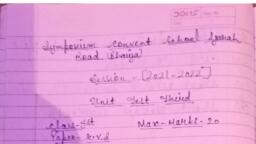 Symposium convent school
Road
Session - (2021-2022)
Unit Test Third
class - Max-Marks - 20
Paper -